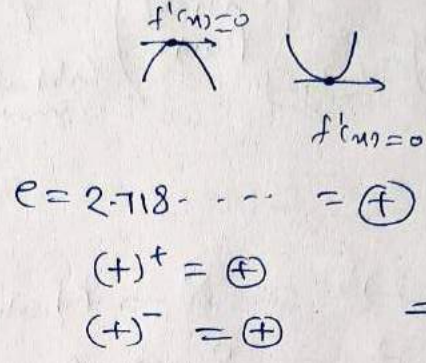 f'(x)=0
f'(x)=0
e = 2.718..... = ⊕
(+)⁺ = ⊕
(+)⁻ = ⊕
=